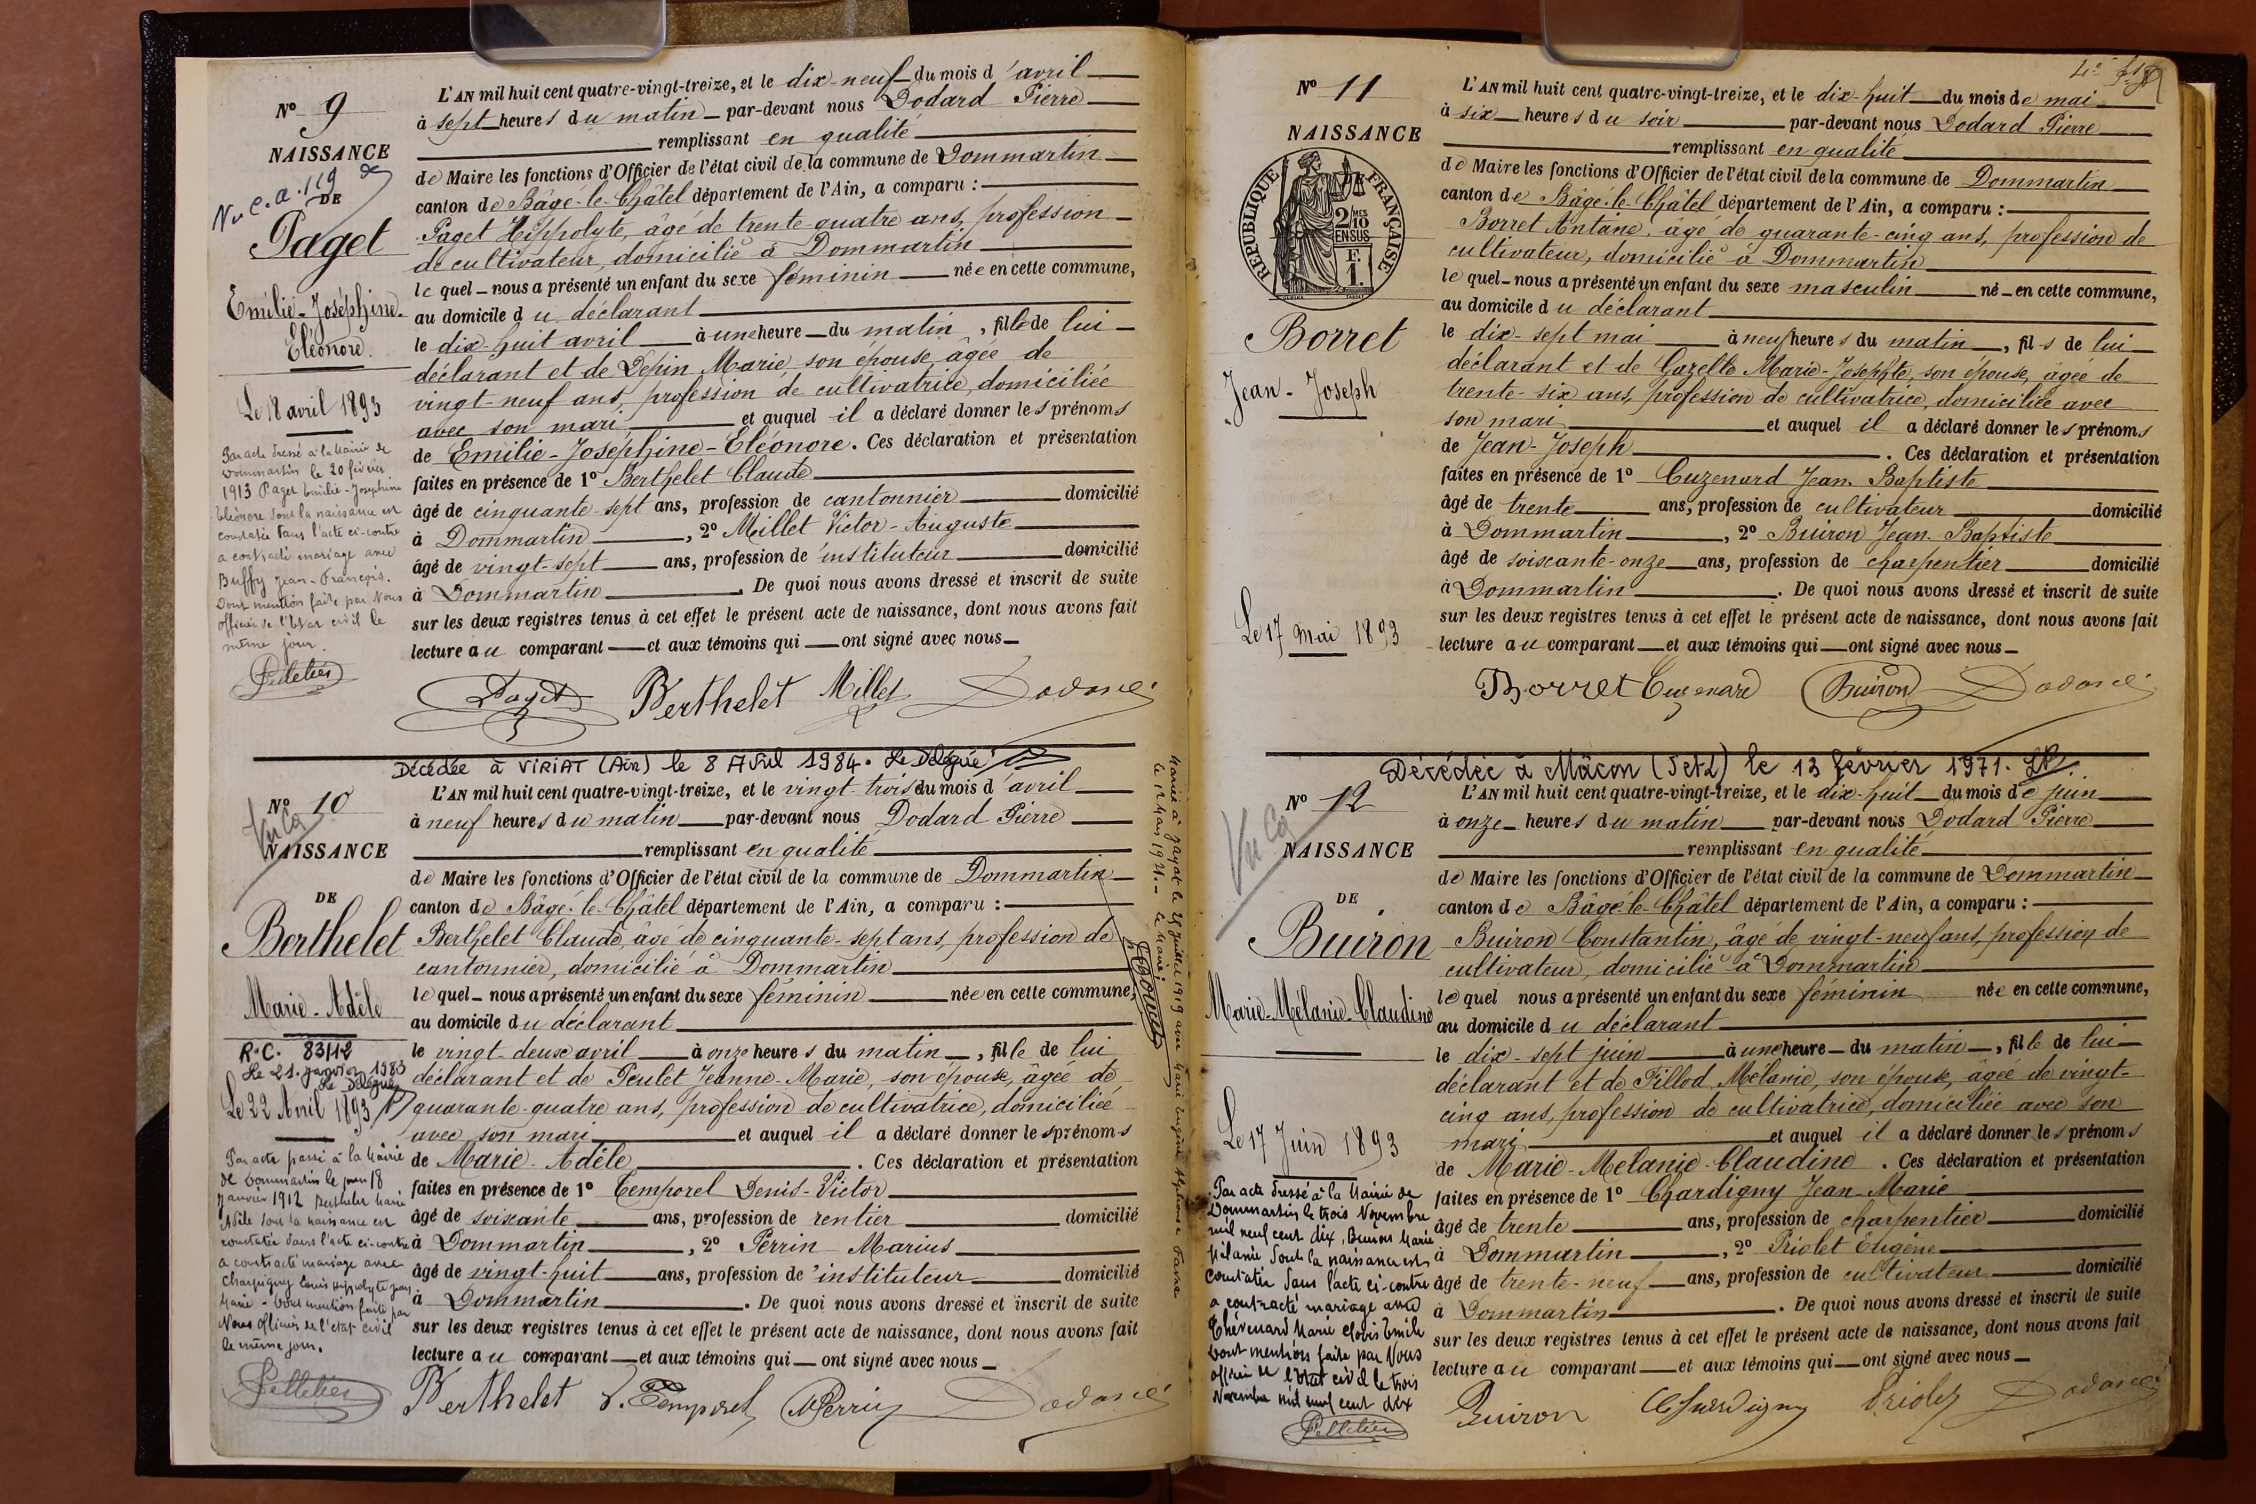 N° 9
NAISSANCE
DE
Paget
Emilie-Joséphine-
Eléonore.
Le 18 avril 1893
Par acte dressé à la Mairie de
Dommartin le 20 février
1913 Paget Emilie-Joséphine
Eléonore dont la naissance est
constatée dans l'acte ci-contre
a contracté mariage avec
Buffy Jean-François.
Dont mention faite par Nous
officier de l'Etat civil le
même jour.
Pelletier
L'AN mil huit cent quatre-vingt-treize, et le dix-neuf du mois d'avril
à sept heures du matin par-devant nous Dodard Pierre
remplissant en qualité
de Maire les fonctions d'Officier de l'état civil de la commune de Dommartin
canton de Bâgé-le-Châtel département de l'Ain, a comparu :
Paget Hippolyte, âgé de trente-quatre ans, profession
de cultivateur, domicilié à Dommartin
lequel nous a présenté un enfant du sexe féminin née en cette commune,
au domicile du déclarant
le dix-huit avril à une heure du matin, fille de lui
déclarant et de Depin Marie, son épouse, âgée de
vingt-neuf ans, profession de cultivatrice, domiciliée
avec son mari et auquel il a déclaré donner les prénoms
de Emilie-Joséphine-Eléonore. Ces déclaration et présentation
faites en présence de 1° Berthelet Claude
âgé de cinquante-sept ans, profession de cantonnier domicilié
à Dommartin, 2° Millet Victor-Auguste
âgé de vingt-sept ans, profession de instituteur domicilié
à Dommartin. De quoi nous avons dressé et inscrit de suite
sur les deux registres tenus à cet effet le présent acte de naissance, dont nous avons fait
lecture au comparant et aux témoins qui ont signé avec nous
Paget Berthelet Millet Dodard
Décédée à VIRIAT (Ain) le 8 Avril 1984. Le Délégué
N° 10
Vu Cg
NAISSANCE
DE
Berthelet
Marie-Adèle
R.C. 83/12
Le 21 janvier 1983
Le Délégué
Le 22 Avril 1893
Par acte passé à la Mairie
de Dommartin le jour 18
Janvier 1912 Berthelet Marie
Adèle dont la naissance est
constatée dans l'acte ci-contre
a contracté mariage avec
Chardigny Louis Hippolyte Jean
Marie - Dont mention faite par
Nous officier de l'état civil
le même jour.
Pelletier
L'AN mil huit cent quatre-vingt-treize, et le vingt-trois du mois d'avril
à neuf heures du matin par-devant nous Dodard Pierre
remplissant en qualité
de Maire les fonctions d'Officier de l'état civil de la commune de Dommartin
canton de Bâgé-le-Châtel département de l'Ain, a comparu :
Berthelet Claude, âgé de cinquante-sept ans, profession de
cantonnier, domicilié à Dommartin
lequel nous a présenté un enfant du sexe féminin née en cette commune,
au domicile du déclarant
le vingt-deux avril à onze heures du matin, fille de lui
déclarant et de Peulet Jeanne-Marie, son épouse, âgée de
quarante-quatre ans, profession de cultivatrice, domiciliée
avec son mari et auquel il a déclaré donner les prénoms
de Marie-Adèle. Ces déclaration et présentation
faites en présence de 1° Temporel Denis-Victor
âgé de soixante ans, profession de rentier domicilié
à Dommartin, 2° Perrin Marius
âgé de vingt-huit ans, profession de instituteur domicilié
à Dommartin. De quoi nous avons dressé et inscrit de suite
sur les deux registres tenus à cet effet le présent acte de naissance, dont nous avons fait
lecture au comparant et aux témoins qui ont signé avec nous
Berthelet D. Temporel MPerrin Dodard
N° 11
NAISSANCE
RÉPUBLIQUE FRANÇAISE
2 MES 10
EN SUS
F.
1.
Borret
Jean-Joseph
Le 17 mai 1893
L'AN mil huit cent quatre-vingt-treize, et le dix-huit du mois de mai
à six heures du soir par-devant nous Dodard Pierre
remplissant en qualité
de Maire les fonctions d'Officier de l'état civil de la commune de Dommartin
canton de Bâgé-le-Châtel département de l'Ain, a comparu :
Borret Antoine, âgé de quarante-cinq ans, profession de
cultivateur, domicilié à Dommartin
lequel nous a présenté un enfant du sexe masculin né en cette commune,
au domicile du déclarant
le dix-sept mai à neuf heures du matin, fils de lui
déclarant et de Gazelle Marie-Josephte, son épouse, âgée de
trente-six ans, profession de cultivatrice, domiciliée avec
son mari et auquel il a déclaré donner les prénoms
de Jean-Joseph. Ces déclaration et présentation
faites en présence de 1° Cuzenard Jean-Baptiste
âgé de trente ans, profession de cultivateur domicilié
à Dommartin, 2° Buiron Jean-Baptiste
âgé de soixante-onze ans, profession de charpentier domicilié
à Dommartin. De quoi nous avons dressé et inscrit de suite
sur les deux registres tenus à cet effet le présent acte de naissance, dont nous avons fait
lecture au comparant et aux témoins qui ont signé avec nous
Borret Cuzenard Buiron Dodard
Décédée à Mâcon (S et L) le 13 février 1971.
N° 12
Vu Cg
NAISSANCE
DE
Buiron
Marie-Mélanie-Claudine
Le 17 Juin 1893
Par acte dressé à la Mairie de
Dommartin le trois Novembre
mil neuf cent dix, Buiron Marie
Mélanie dont la naissance est
constatée dans l'acte ci-contre
a contracté mariage avec
Thévenard Marie Clovis Emile
Dont mention faite par Nous
officier de l'Etat civil le trois
Novembre mil neuf cent dix
Pelletier
L'AN mil huit cent quatre-vingt-treize, et le dix-huit du mois de juin
à onze heures du matin par-devant nous Dodard Pierre
remplissant en qualité
de Maire les fonctions d'Officier de l'état civil de la commune de Dommartin
canton de Bâgé-le-Châtel département de l'Ain, a comparu :
Buiron Constantin, âgé de vingt-neuf ans, profession de
cultivateur, domicilié à Dommartin
lequel nous a présenté un enfant du sexe féminin née en cette commune,
au domicile du déclarant
le dix-sept juin à une heure du matin, fille de lui
déclarant et de Pillod Mélanie, son épouse, âgée de vingt-
cinq ans, profession de cultivatrice, domiciliée avec son
mari et auquel il a déclaré donner les prénoms
de Marie-Mélanie-Claudine. Ces déclaration et présentation
faites en présence de 1° Chardigny Jean-Marie
âgé de trente ans, profession de charpentier domicilié
à Dommartin, 2° Priolet Eugène
âgé de trente-neuf ans, profession de cultivateur domicilié
à Dommartin. De quoi nous avons dressé et inscrit de suite
sur les deux registres tenus à cet effet le présent acte de naissance, dont nous avons fait
lecture au comparant et aux témoins qui ont signé avec nous
Buiron Chardigny Priolet Dodard